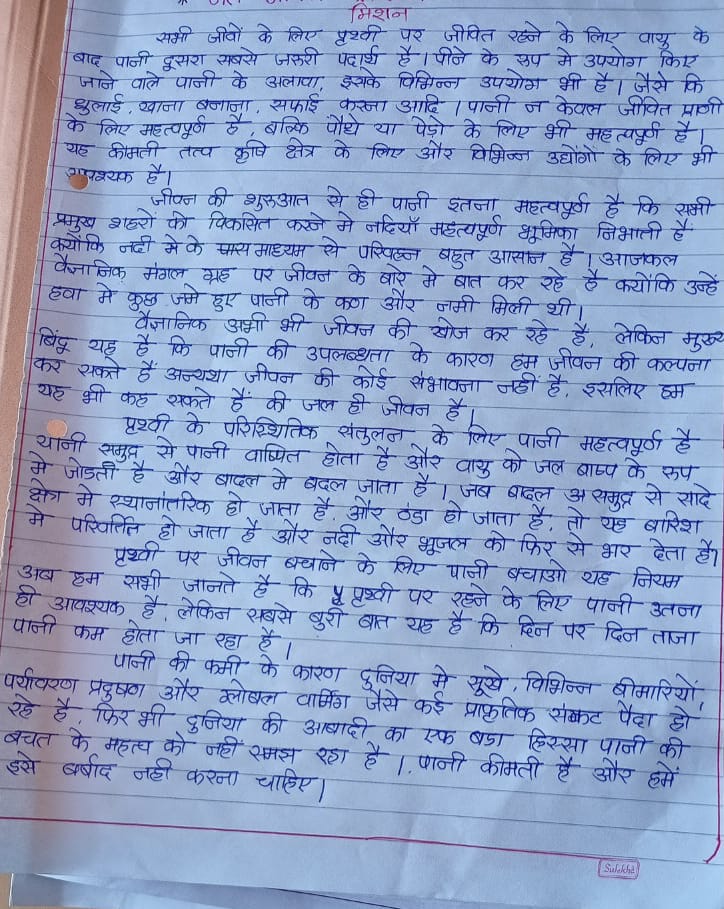 मिशन
सभी जीवों के लिए पृथ्वी पर जीवित रहने के लिए वायु के
बाद पानी दुसरा सबसे जरुरी पदार्थ है। पीने के रुप मे उपयोग किए
जाने वाले पानी के अलावा, इसके विभिन्न उपयोग भी है। जैसे कि
धुलाई, खाना बनाना, सफाई करना आदि। पानी न केवल जीवित प्राणी
के लिए महत्वपूर्ण है, बल्कि पौधे या पेड़ो के लिए भी महत्वपूर्ण है।
यह कीमती तत्व कृषि क्षेत्र के लिए और विभिन्न उद्योगों के लिए भी
आवश्यक है।
जीवन की शुरुआत से ही पानी इतना महत्वपूर्ण है कि सभी
प्रमुख शहरों की विकसित करने मे नदियाँ महत्वपूर्ण भूमिका निभाती है
क्योंकि नदी मे के माध्यम से परिवहन बहुत आसान है। आजकल
वैज्ञानिक मंगल ग्रह पर जीवन के बारे मे बात कर रहे है क्योंकि उन्हें
हवा मे कुछ जमे हुए पानी के कण और नमी मिली थी।
वैज्ञानिक अभी भी जीवन की खोज कर रहे है, लेकिन मुख्य
बिंदू यह है कि पानी की उपलब्धता के कारण हम जीवन की कल्पना
कर सकते हैं अन्यथा जीवन की कोई संभावना नहीं है, इसलिए हम
यह भी कह सकते हैं की जल ही जीवन है।
पृथ्वी के परिस्थितिक संतुलन के लिए पानी महत्वपूर्ण है
यानी समुद्र से पानी वाष्पित होता है और वायु को जल बाष्प के रुप
मे जोडती है और बादल मे बदल जाता है। जब बादल समुद्र से सादे
क्षेत्र मे स्थानांतरिक हो जाता है, और ठंडा हो जाता है, तो यह बारिश
मे परिवर्तित हो जाता है और नदी और भूजल को फिर से भर देता है।
पृथ्वी पर जीवन बचाने के लिए पानी बचाओ यह नियम
अब हम सभी जानते है कि पृथ्वी पर रहने के लिए पानी उतना
ही आवश्यक है, लेकिन सबसे बुरी बात यह है कि दिन पर दिन ताजा
पानी कम होता जा रहा है।
पानी की कमी के कारण दुनिया मे सूखे, विभिन्न बीमारियों,
पर्यावरण प्रदूषण और ग्लोबल वार्मिंग जैसे कई प्राकृतिक संकट पैदा हो
रहे है, फिर भी दुनिया की आबादी का एक बडा हिस्सा पानी की
बचत के महत्व को नहीं समझ रहा है। पानी कीमती है और हमें
इसे बर्बाद नही करना चाहिए।
Sulekha